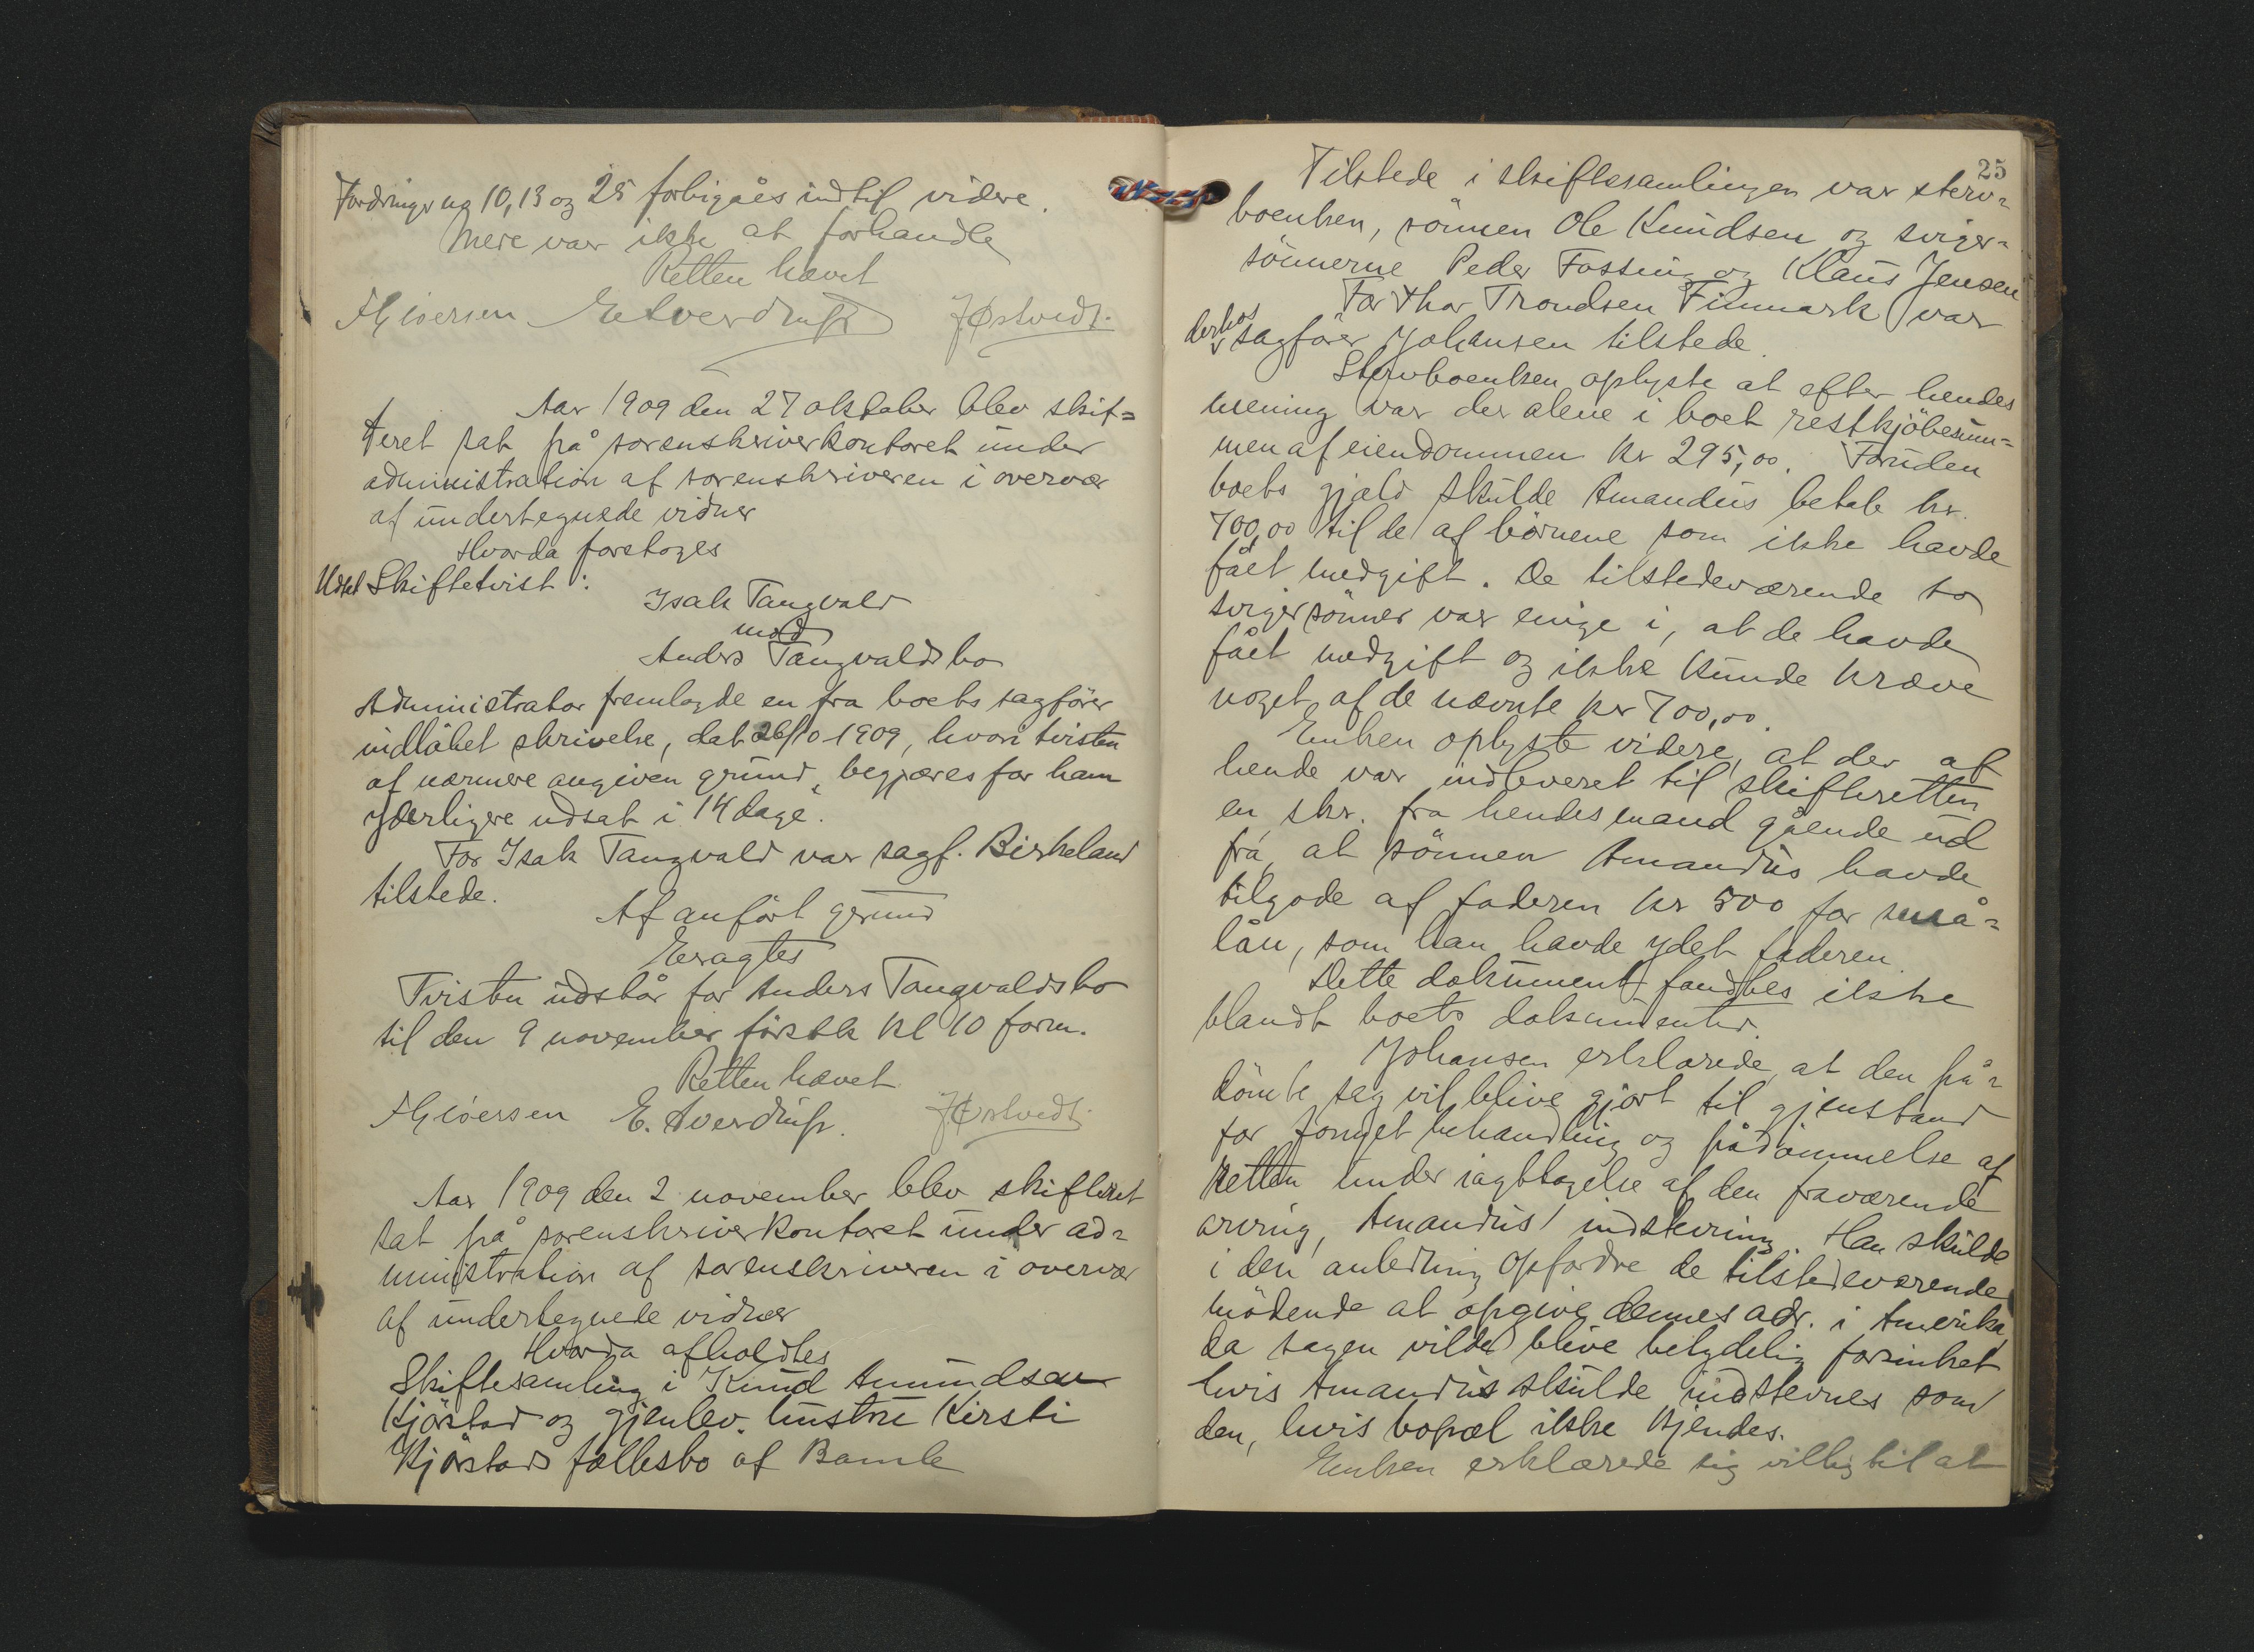 Fordringr no 10, 13 og 25 forbigåes indtil videre.
Mere var ikke at forhandle
Retten hævet
E. Averdrup JØstvedt.
Aar 1909 den 27 oktober blev skif=
teret sat på sorenskriverkontoret under
administration af sorenskriveren i overvær
af undertegnede vidner
Hvorda foretoges
Udsat Skiftetvist:
Isak Tangvald
mod
Anders Tangvalds bo
Administrator fremlagde en fra boets sagfører
indløbet skrivelse, dat 26/10 1909, hvori tvisten
af nærmere angiven grund, begjæres for ham
yderligere udsat i 14 dage.
For Isak Tangvald var sagf. Birkeland
tilstede.
Af anført grund
Eragtes
Tvisten udstår for Anders Tangvalds bo
til den 9 november førstk kl 10 form.
Retten hævet
E. Averdrup. JØstvedt.
Aar 1909 den 2 november blev skifteret
sat på sorenskriverkontoret under ad=
ministration af sorenskriveren i overvær
af undertegnede vidner
Hvorda afholdtes
Skiftesamling i Knud Amundsen
Kjørstad og gjenlev. hustru Kirsti
Kjørstads fællesbo af Bamle
25
Tilstede i skiftesamlingen var sterv=
boenken, sønnen Ole Knudsen og sviger=
sønnerne Peder Fossing og Klaus Jensen
For Thor Trondsen Finmark var
derhos sagfører Johansen tilstede.
Stervboenken oplyste at efter hendes
mening var der alene i boet restkjøbesum=
men af eiendommen kr 295,00. Foruden
boets gjæld skulde Amandus betale kr.
700,00 til de af børnene som ikke havde
fået medgift. De tilstedeværende to
svigersønner var enige i, at de havde
fået medgift og ikke kunde kræve
noget af de nævnte kr 700,00.
Enken oplyste videre, at der af
hende var indleveret til skifteretten
en skr. fra hendes mand gående ud
fra, at sønnen Amandus havde
tilgode af faderen kr 500 for små=
lån, som han havde ydet faderen.
Dette dokument fandtes ikke
blandt boets dokumenter.
Johansen erklærede, at den på=
dømte sag vil blive gjort til gjenstand
for fornyet behandling og pådømmelse af
retten under iagttagelse af den fraværende
arving, Amandus' indstevning. Han skulde
i den anledning opfordre de tilstedeværende
mødende at opgive dennes adr. i Amerika,
da sagen vilde blive betydelig forsinket
hvis Amandus skulde indstevnes som
den, hvis bopæl ikke kjendes.
Enken erklærede sig villig til at